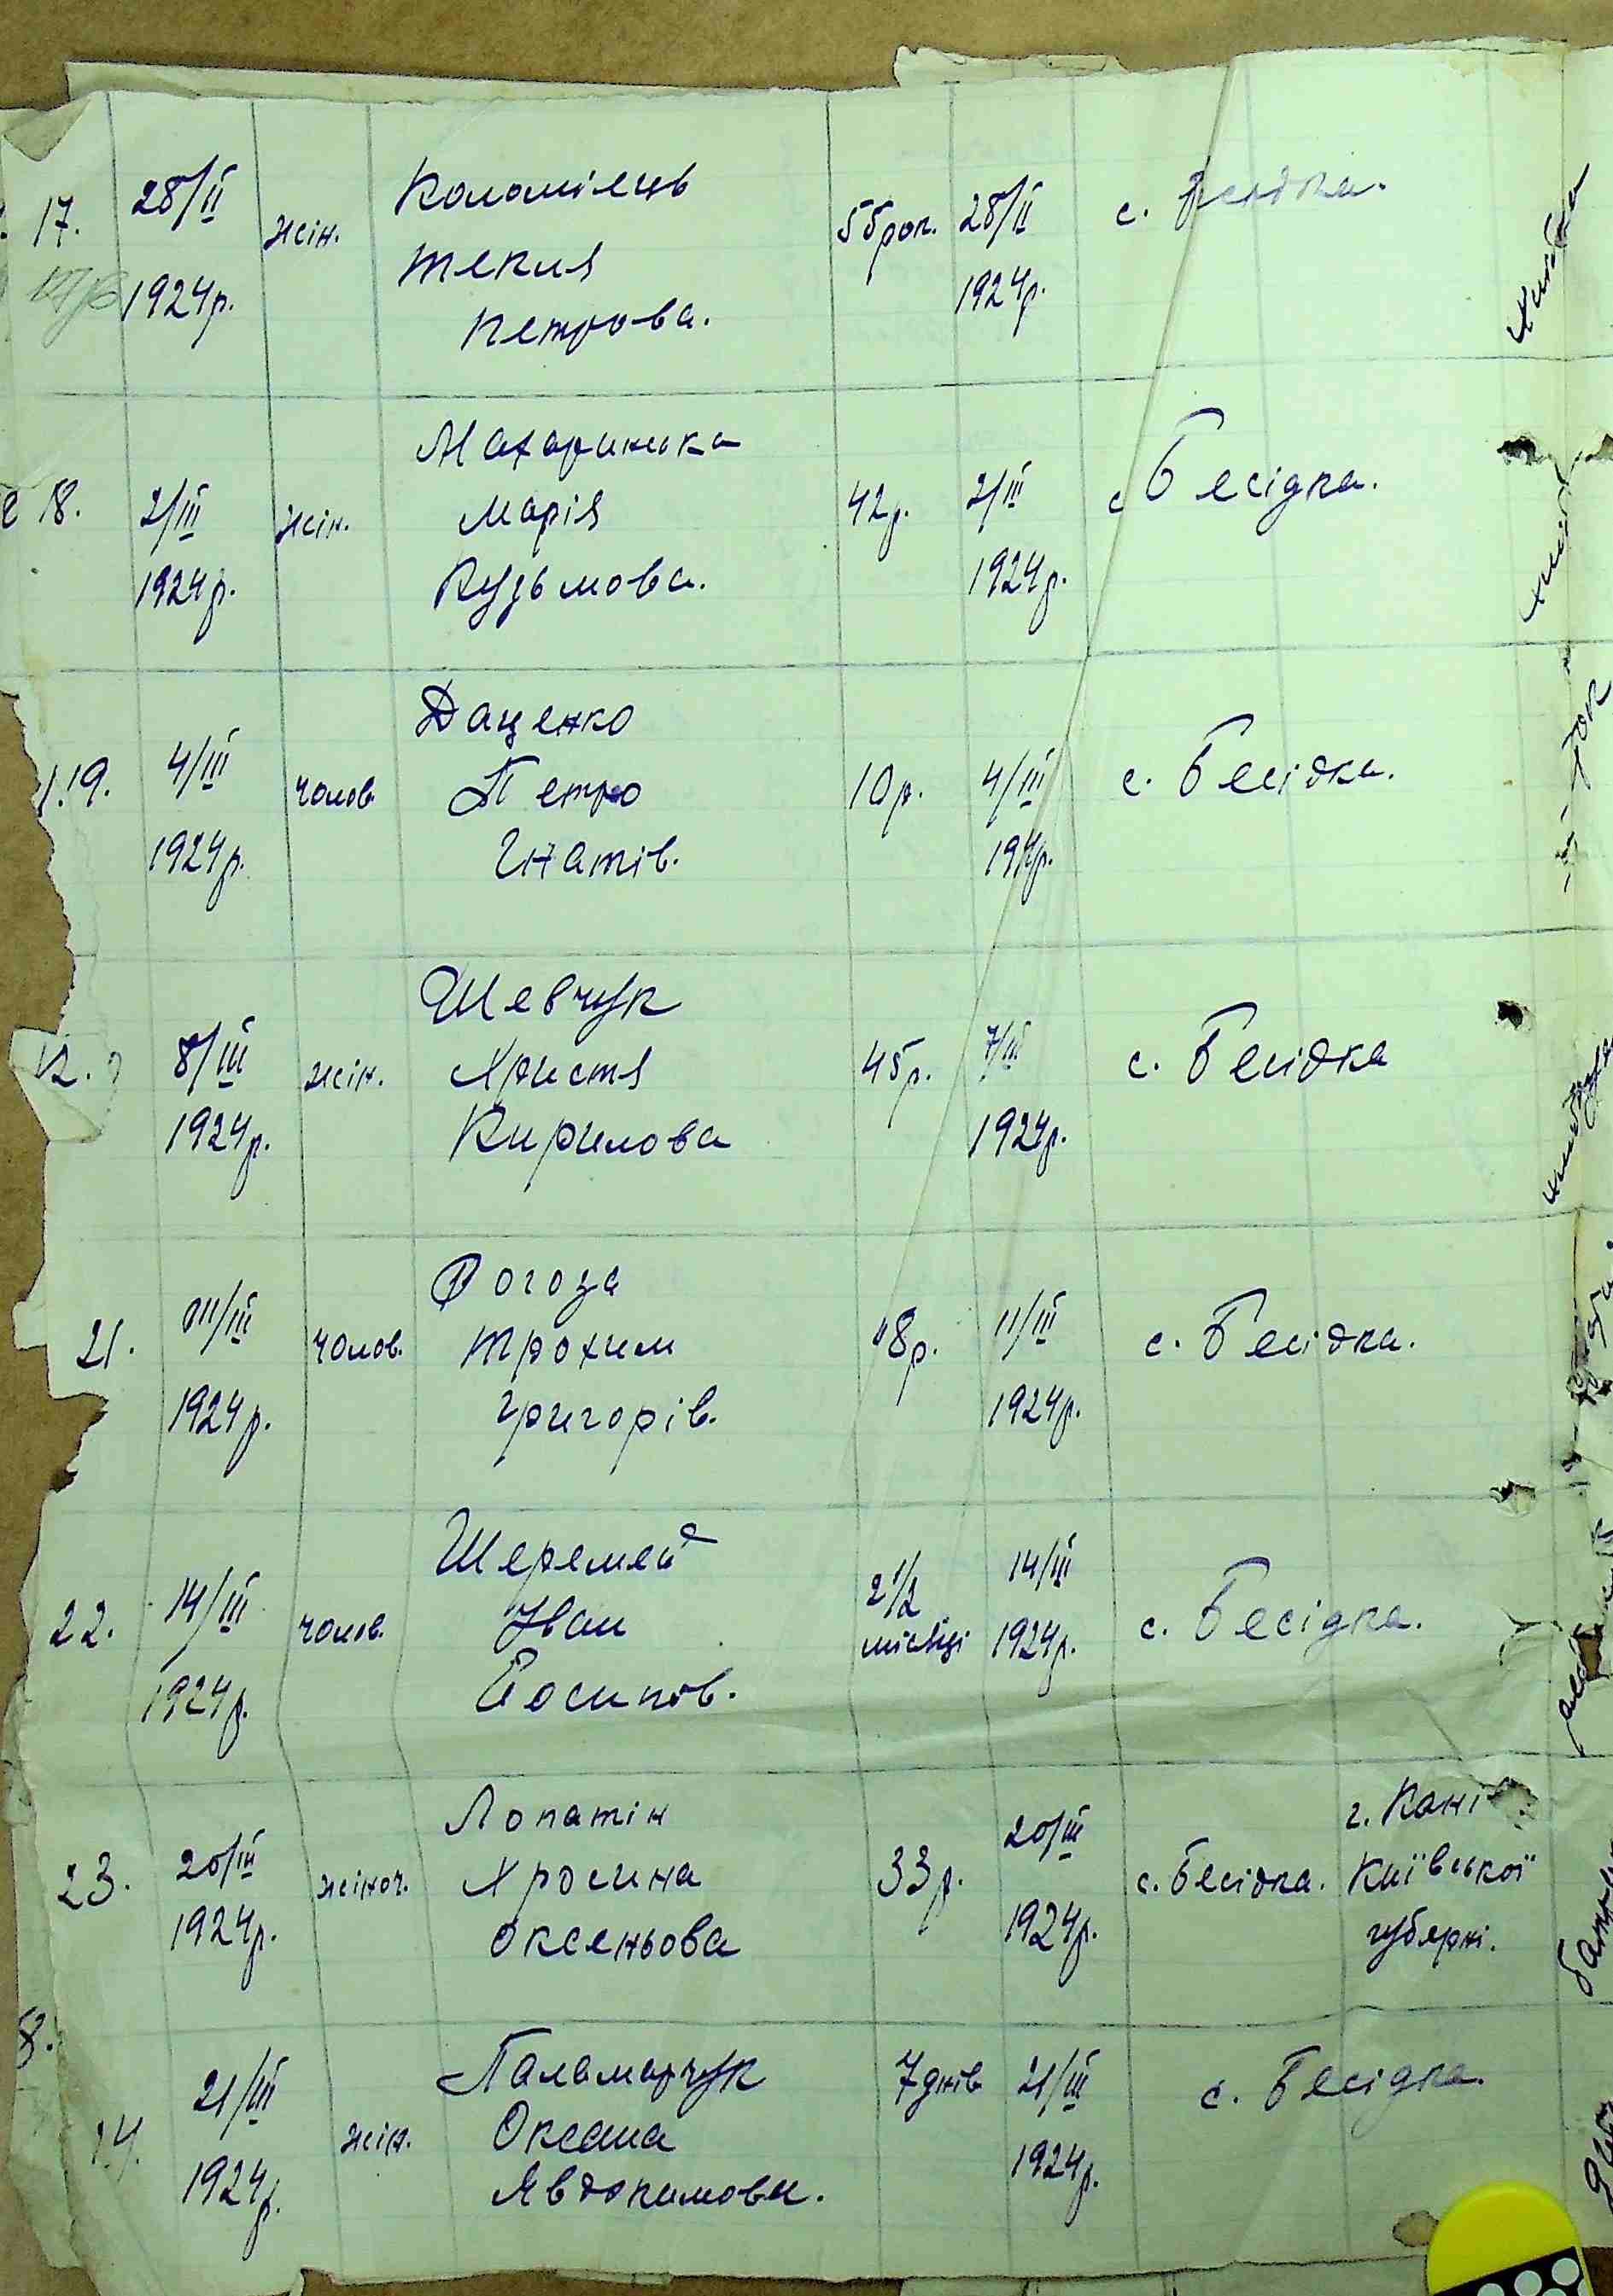 17.
28/II
1924р.
жін.
Коломієць
Текля
Петрова.
55 рок.
28/II
1924р.
с. Бесідка.
18.
2/III
1924р.
жін.
Махаринська
Марія
Кузьмова.
42р.
2/III
1924р.
с Бесідка.
19.
4/III
1924р.
чолов.
Даценко
Петро
Гнатів.
10р.
4/III
с. Бесідка.
8/III
1924р.
жін.
Шевчук
Христя
Кирилова
45р.
7/III
1924р.
с. Бесідка
21.
11/III
1924р.
чолов.
Рогоза
Трохим
Григорів.
8р.
11/III
1924р.
с. Бесідка.
22.
14/III
1924р.
чолов.
Шеремет
Іван
Йосипів.
2 1/2
місяці
14/III
1924р.
с. Бесідка.
23.
20/III
1924р.
жіноч.
Лопатін
Хросина
Оксеньова
33р.
20/III
1924р.
с. Бесідка.
г. Канів
Київської
губерні.
21/III
1924р.
жін.
Паламарчук
Оксана
Явдокимова.
7 днів
21/III
1924р.
с. Бесідка.